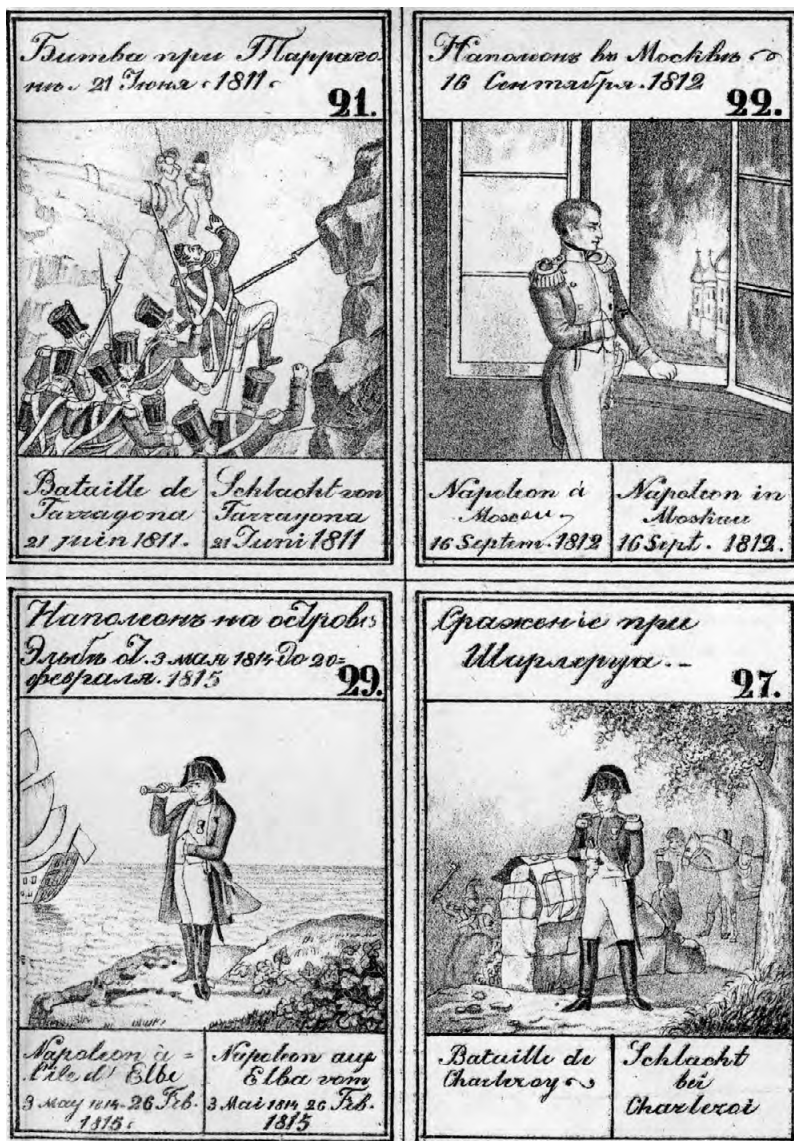 Битва при Тарраго
нѣ. 21 Іюня. 1811.
21.
Bataille de
Tarragona
21 juin 1811.
Schlacht von
Tarragona
21 Juni 1811
Наполеонъ въ Москвѣ
16 Сентября. 1812
22.
Napoleon à
Moscau
16 Septem. 1812
Napoleon in
Moskau
16 Sept. 1812.
Наполеонъ на островѣ
Эльбѣ от. 3 мая 1814 до 20=
февраля. 1815
29.
Napoleon à =
l'ile d' Elbe
3 may 1814. 26 Feb.
1815.
Napoleon auf
Elba vom
3 Mai 1814 26 Feb.
1815
Сраженіе при
Шарлеруа. -
27.
Bataille de
Charleroy
Schlacht
bei
Charleroi